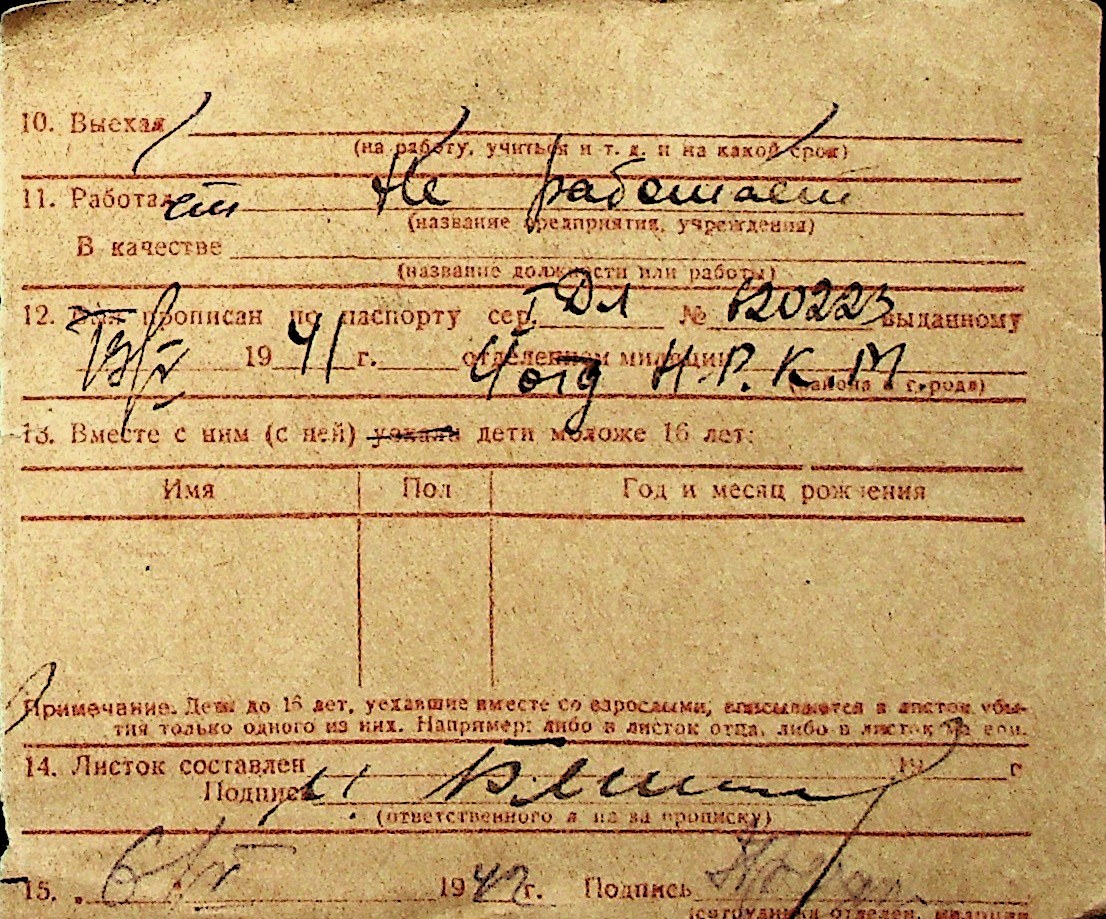 10. Выехал
(на работу, учиться и т. д. и на какой срок)
11. Работает Не работает
(название предприятия, учреждения)
В качестве
(название должности или работы)
12. Был прописан по паспорту сер. I ДЛ № 620223 выданному
1941 г. отделением милиции 4 отд Н.Р.К.М
(района и города)
13. Вместе с ним (с ней) уехали дети моложе 16 лет:
Имя Пол Год и месяц рождения
Примечание. Дети до 16 лет, уехавшие вместе со взрослыми, вписываются в листок убы-
тия только одного из них. Например: либо в листок отца, либо в листок матери.
14. Листок составлен 19 г.
Подпись
(ответственного лица за прописку)
15. 6/VI 1942 г. Подпись
(сотрудника отделен. милиции)